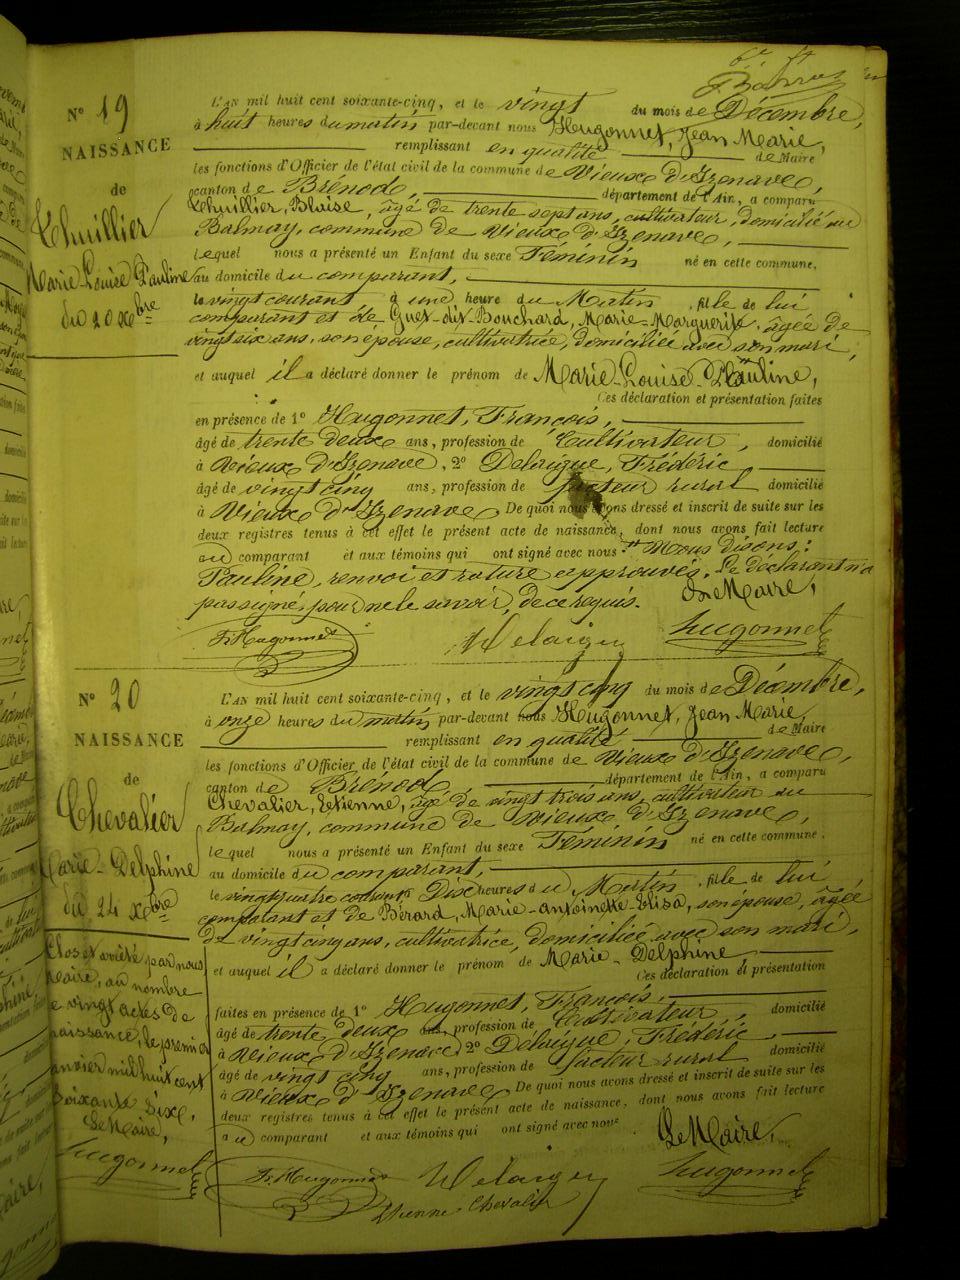 6e ff
N° 19
NAISSANCE
de
Thuillier
Marie-Louise-Pauline
du 20 Xbre
L'AN mil huit cent soixante-cinq, et le vingt du mois de Décembre,
à huit heures du matin par-devant nous Hugonnet, Jean Marie,
remplissant en qualité de Maire
les fonctions d'Officier de l'état civil de la commune de Vieux d'Izenave,
canton de Brénod, département de l'Ain, a comparu
Thuillier, Blaise, âgé de trente sept ans, cultivateur, domicilié au
Balmay, commune de Vieux d'Izenave,
lequel nous a présenté un Enfant du sexe Féminin né en cette commune,
au domicile du comparant,
le vingt courant à une heure du Matin, fille de lui
comparant et de Guex-dit-Bouchard, Marie-Marguerite, âgée de
vingt six ans, son épouse, cultivatrice, domiciliée avec son mari,
et auquel il a déclaré donner le prénom de Marie-Louise-Pauline,
Ces déclaration et présentation faites
en présence de 1° Hugonnet, François,
âgé de trente deux ans, profession de Cultivateur, domicilié
à Vieux d'Izenave, 2° Delaigue, Frédéric
âgé de vingt cinq ans, profession de facteur rural domicilié
à Vieux d'Izenave De quoi nous avons dressé et inscrit de suite sur les
deux registres tenus à cet effet le présent acte de naissance, dont nous avons fait lecture
au comparant et aux témoins qui ont signé avec nous. Nous disons:
Pauline, renvoi et rature approuvés. Le déclarant n'a
pas signé, pour ne le savoir, de ce requis. Le Maire,
Fr. Hugonnet Delaigue Hugonnet
N° 20
NAISSANCE
de
Chevalier
Marie-Delphine
du 24 Xbre
L'AN mil huit cent soixante-cinq, et le vingt cinq du mois de Décembre,
à onze heures du matin par-devant nous Hugonnet, Jean Marie,
remplissant en qualité de Maire
les fonctions d'Officier de l'état civil de la commune de Vieux d'Izenave,
canton de Brénod département de l'Ain, a comparu
Chevalier, Etienne, âgé de vingt trois ans, cultivateur au
Balmay, commune de Vieux d'Izenave,
lequel nous a présenté un Enfant du sexe Féminin né en cette commune,
au domicile du comparant,
le vingt quatre courant Dix heures du Matin, fille de lui
comparant et de Bérard, Marie-Antoinette Elisa, son épouse, âgée
de vingt cinq ans, cultivatrice, domiciliée avec son mari,
et auquel il a déclaré donner le prénom de Marie-Delphine,
Ces déclaration et présentation
faites en présence de 1° Hugonnet, François,
âgé de trente deux ans, profession de Cultivateur, domicilié
à Vieux d'Izenave 2° Delaigue, Frédéric
âgé de vingt cinq ans, profession de facteur rural domicilié
à Vieux d'Izenave De quoi nous avons dressé et inscrit de suite sur les
deux registres tenus à cet effet le présent acte de naissance, dont nous avons fait lecture
au comparant et aux témoins qui ont signé avec nous. Le Maire,
Fr. Hugonnet Delaigue Hugonnet
Etienne Chevalier
Clos et arrêté par nous
Maire, au nombre
de vingt actes de
naissance, le premier
janvier mil huit cent
soixante six,
Le Maire,
Hugonnet